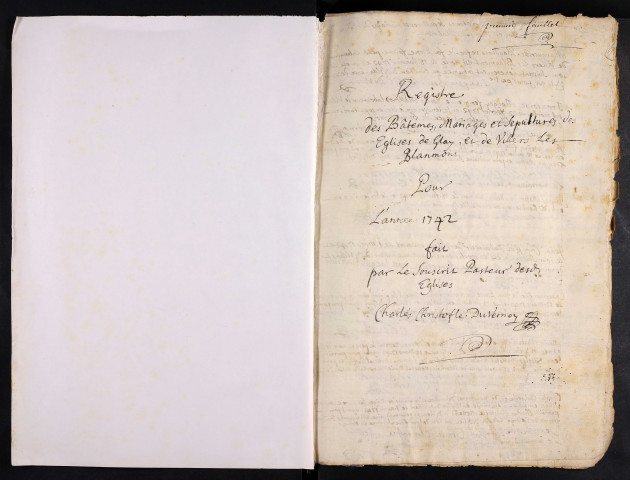 premier feuillet
Registre
des Bâtêmes, Mariages et Sepultures des
Eglises de Glay, et de Vilers Les
Blanmons
Pour
L'année 1742
fait
par Le Souscrit Pasteur desd.
Eglises
Charles Christofle Duvernoy